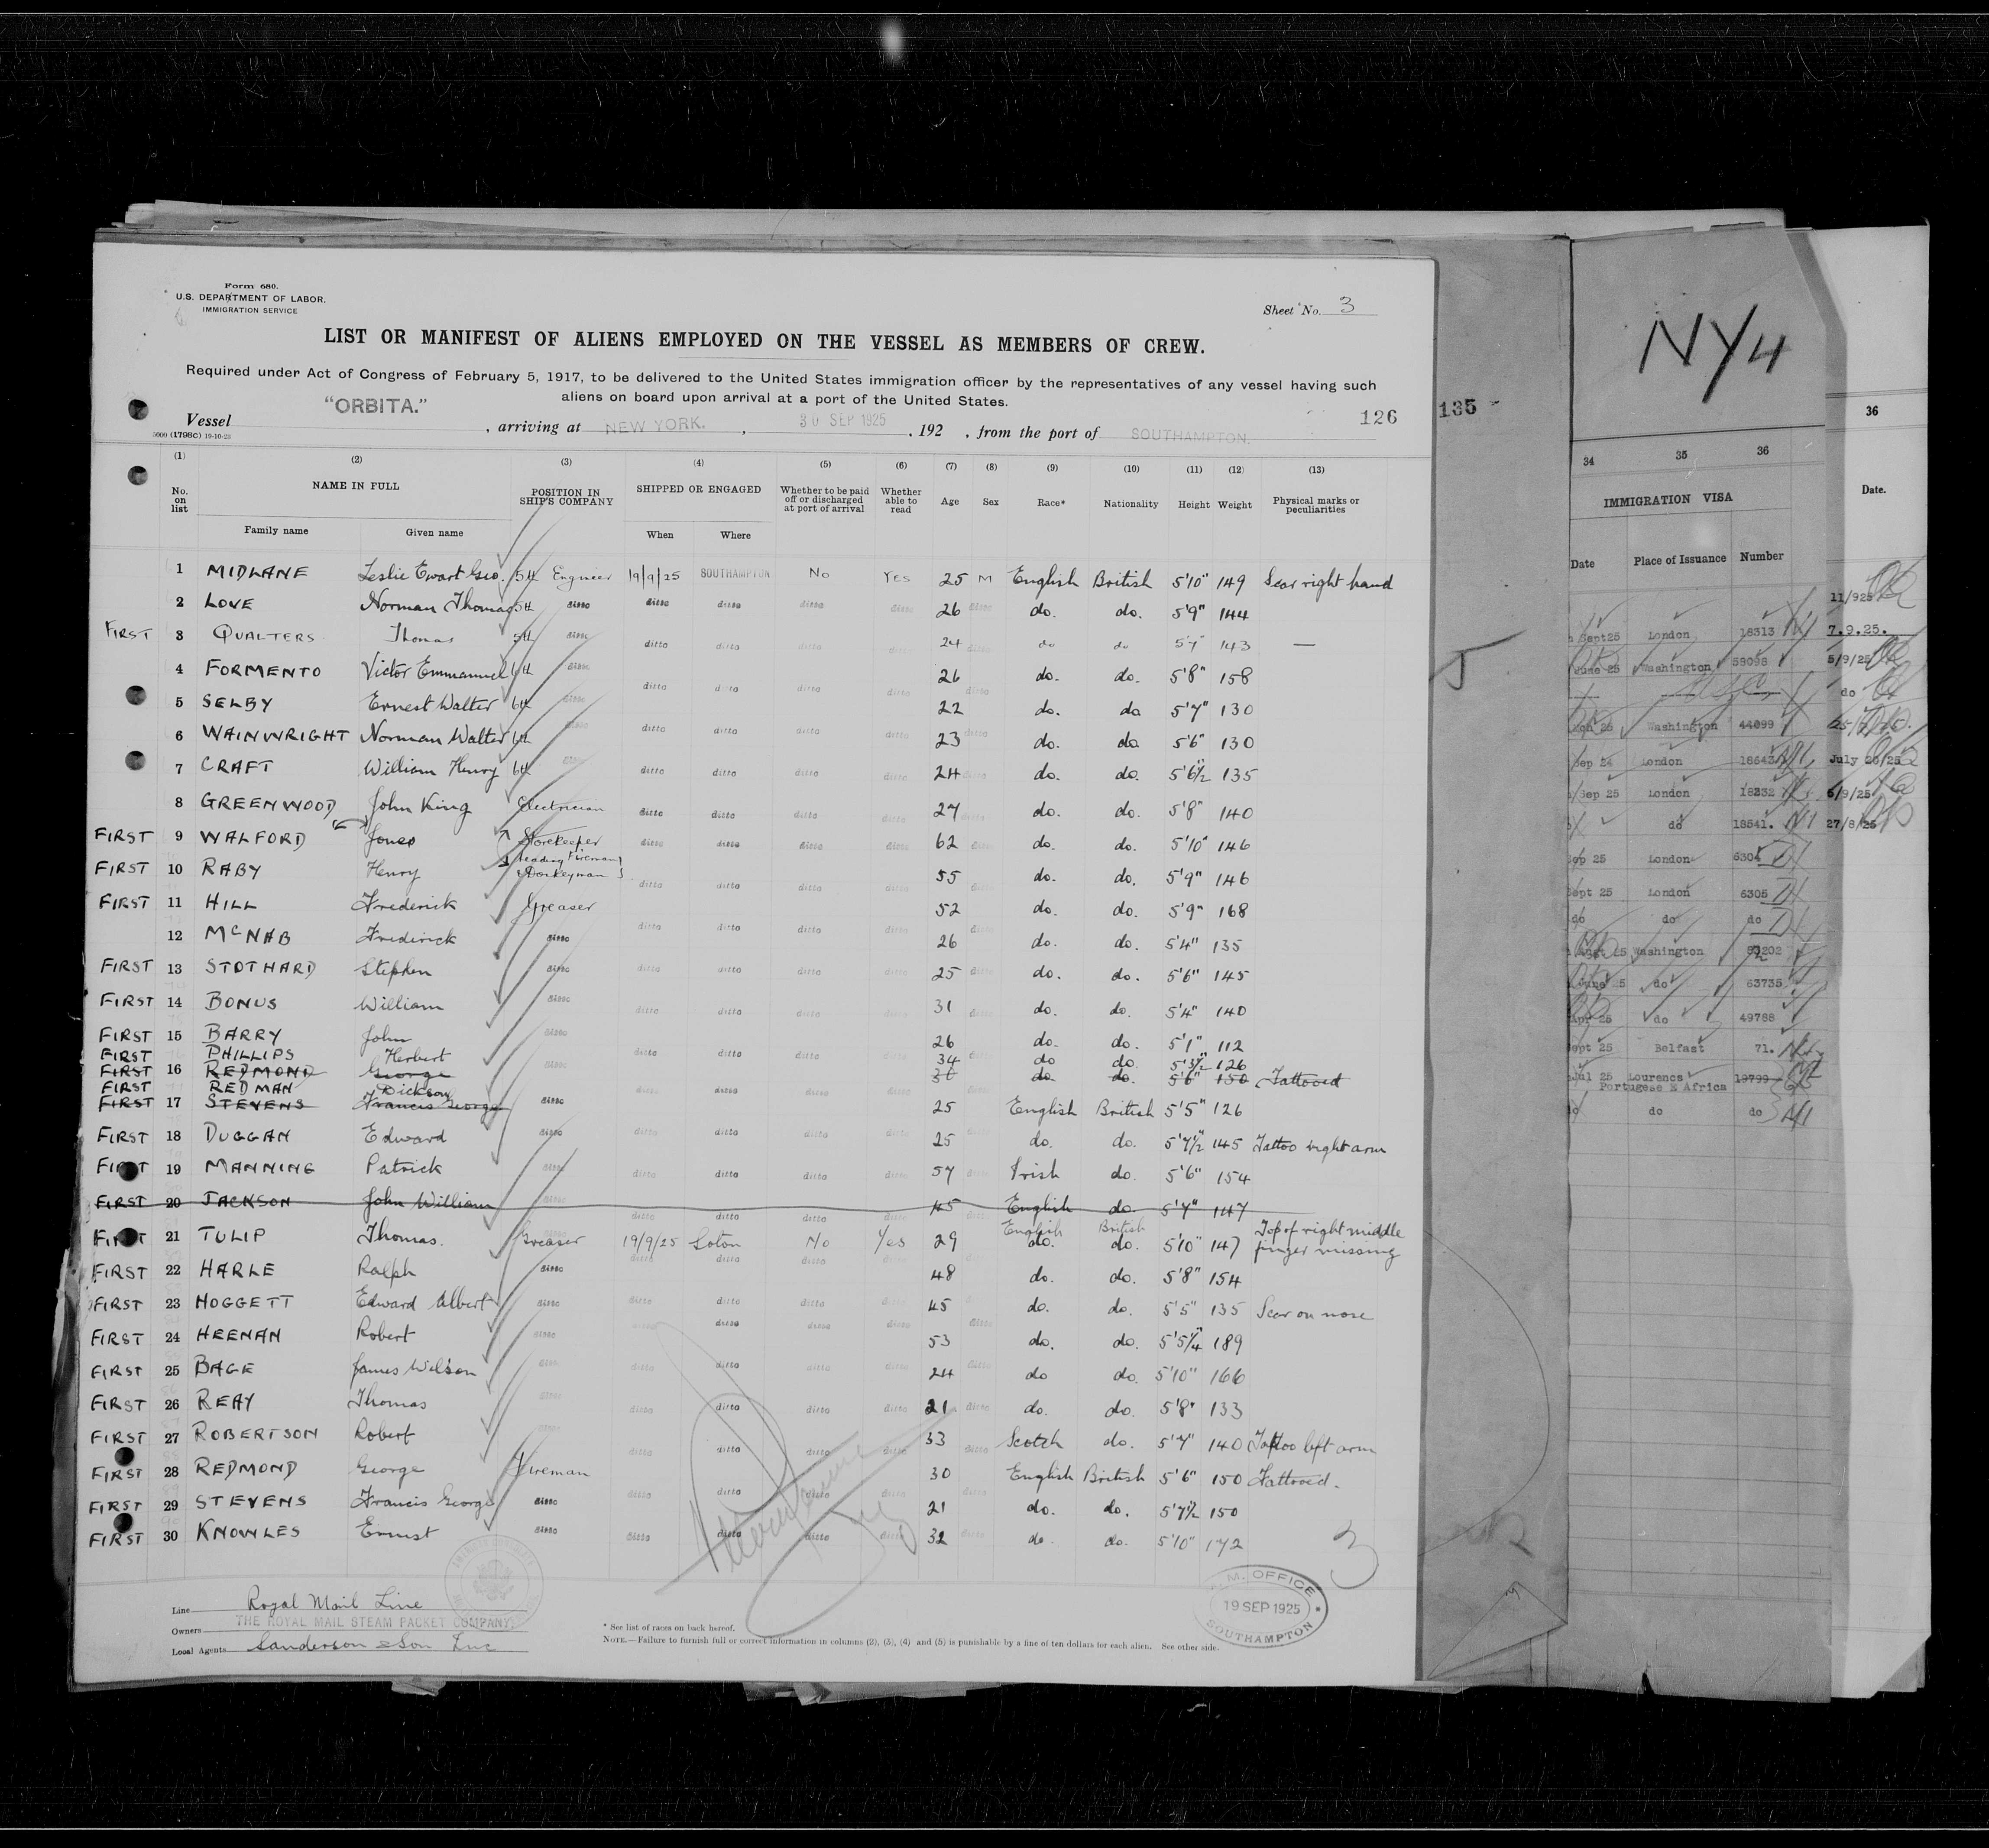 Form 680.
U.S. DEPARTMENT OF LABOR.
IMMIGRATION SERVICE
Sheet No. 3
LIST OR MANIFEST OF ALIENS EMPLOYED ON THE VESSEL AS MEMBERS OF CREW.
Required under Act of Congress of February 5, 1917, to be delivered to the United States immigration officer by the representatives of any vessel having such
aliens on board upon arrival at a port of the United States.
Vessel "ORBITA." , arriving at NEW YORK. , 30 SEP 1925 , 192 , from the port of SOUTHAMPTON. 126
5000 (1798C) 19-10-23
(1) (2) (3) (4) (5) (6) (7) (8) (9) (10) (11) (12) (13)
No. on list NAME IN FULL Family name Given name POSITION IN SHIP'S COMPANY SHIPPED OR ENGAGED When Where Whether to be paid off or discharged at port of arrival Whether able to read Age Sex Race* Nationality Height Weight Physical marks or peculiarities
1 MIDLANE Leslie Ewart Geo. 5th Engineer 19/9/25 SOUTHAMPTON No Yes 25 M English British 5'10" 149 Scar right hand
2 LOVE Norman Thomas 5th ditto ditto ditto ditto ditto 26 ditto do. do. 5'9" 144
FIRST 3 QUALTERS Thomas 5th ditto ditto ditto ditto ditto 24 ditto do do 5'7" 143 —
4 FORMENTO Victor Emmanuel 6th ditto ditto ditto ditto ditto 26 ditto do. do. 5'8" 158
5 SELBY Ernest Walter 6th ditto 22 do. do 5'7" 130
6 WAINWRIGHT Norman Walter 6th ditto ditto ditto ditto ditto 23 ditto do. do. 5'6" 130
7 CRAFT William Henry 6th ditto ditto ditto ditto ditto 24 ditto do. do. 5'6½" 135
8 GREENWOOD John King Electrician ditto ditto ditto ditto 27 ditto do. do. 5'8" 140
FIRST 9 WALFORD Jones Storekeeper ditto ditto ditto ditto 62 ditto do. do. 5'10" 146
FIRST 10 RABY Henry Leading Fireman & Donkeyman ditto ditto ditto ditto 55 ditto do. do. 5'9" 146
FIRST 11 HILL Frederick Greaser 52 do. do. 5'9" 168
12 McNAB Frederick ditto ditto ditto ditto ditto 26 ditto do. do. 5'4" 135
FIRST 13 STOTHARD Stephen ditto ditto ditto ditto ditto 25 ditto do. do. 5'6" 145
FIRST 14 BONUS William ditto ditto ditto ditto ditto 31 ditto do. do. 5'4" 140
FIRST 15 BARRY John ditto 26 do. do. 5'1" 112
FIRST PHILLIPS Herbert 34 do do. 5'3½" 126
FIRST 16 REDMOND George ditto ditto ditto ditto ditto do. do. 5'6" 150 Tattooed
FIRST REDMAN Dickson
FIRST 17 STEVENS Francis George ditto ditto ditto ditto ditto 25 English British 5'5" 126
FIRST 18 DUGGAN Edward ditto ditto ditto ditto ditto 25 do. do. 5'7½" 145 Tattoo right arm
FIRST 19 MANNING Patrick ditto ditto ditto ditto ditto 57 Irish do. 5'6" 154
FIRST 20 JACKSON John William ditto ditto ditto ditto ditto 45 English do. 5'7" 147
FIRST 21 TULIP Thomas. Greaser 19/9/25 Soton No Yes 29 English do. British do. 5'10" 147 Top of right middle finger missing
FIRST 22 HARLE Ralph ditto ditto ditto ditto 48 do. do. 5'8" 154
FIRST 23 HOGGETT Edward Albert ditto ditto ditto ditto ditto 45 do. do. 5'5" 135 Scar on nose
FIRST 24 HEENAN Robert ditto ditto ditto ditto 53 ditto do. do. 5'5¼" 189
FIRST 25 BAGE James Wilson ditto ditto ditto ditto ditto 24 ditto do do. 5'10" 166
FIRST 26 REAY Thomas ditto ditto ditto ditto ditto 21 ditto do. do. 5'8" 133
FIRST 27 ROBERTSON Robert ditto ditto ditto ditto 33 ditto Scotch do. 5'7" 140 Tattoo left arm
FIRST 28 REDMOND George Fireman 30 English British 5'6" 150 Tattooed.
FIRST 29 STEVENS Francis George ditto ditto ditto ditto ditto 21 ditto do. do. 5'7½" 150
FIRST 30 KNOWLES Ernest ditto ditto ditto ditto ditto 32 ditto do. do. 5'10" 172
3
Line Royal Mail Line
Owners THE ROYAL MAIL STEAM PACKET COMPANY.
Local Agents Sanderson & Son Inc
* See list of races on back hereof.
NOTE.—Failure to furnish full or correct information in columns (2), (3), (4) and (5) is punishable by a fine of ten dollars for each alien. See other side.
M. OFFICE
19 SEP 1925
SOUTHAMPTON
135
NY4
34 35 36
IMMIGRATION VISA
Date Place of Issuance Number
Sept 25 London 18313
June 25 Washington 58098
Washington 44099
Sep 24 London 18643
Sep 25 London 18232
do 18541.
Sep 25 London 6304
Sept 25 London 6305
do do do
Augt 25 Washington
June 25 do 63735
Apr 25 do 49788
Sept 25 Belfast 71.
Jul 25 Lourenco 19799
Portugese E Africa
do do
36
Date.
11/925
7.9.25.
5/9/25
do
July 20/25
6/9/25
27/8/25